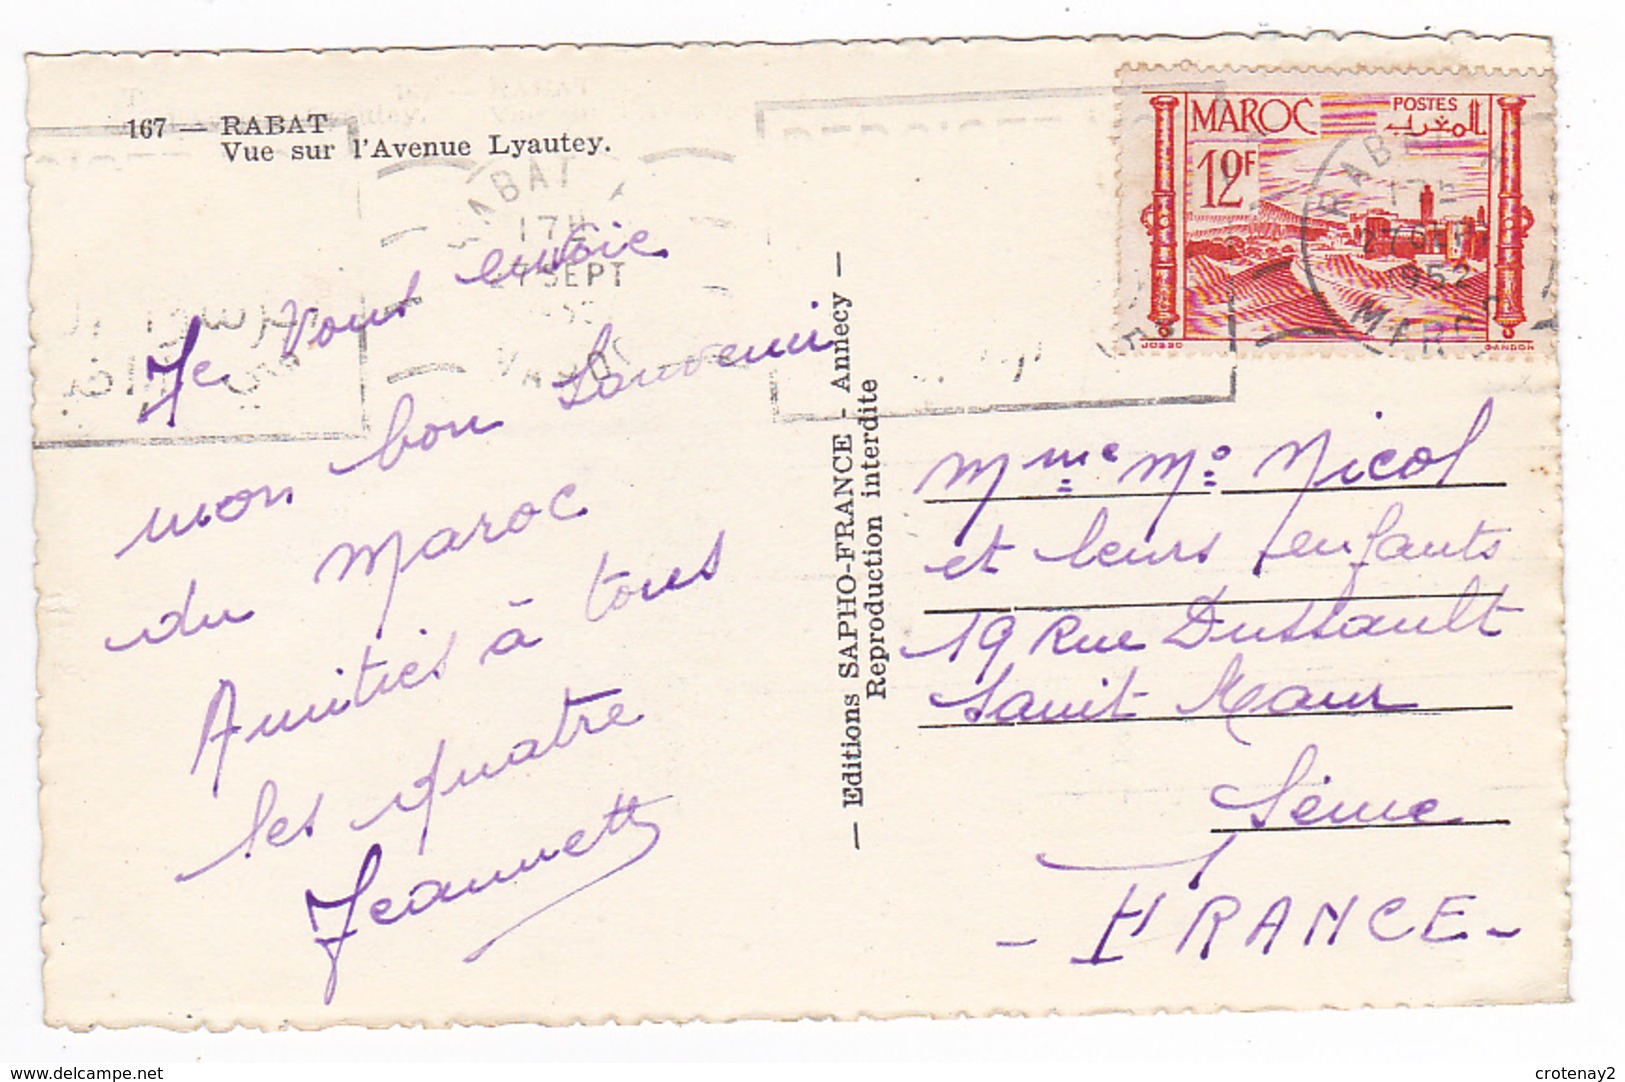 167 — RABAT
Vue sur l'Avenue Lyautey.
RABAT
17H
27 SEPT
MAROC
POSTES
المغرب
12F
JOSSO
GANDON
RABAT
27 SEPT
1952
MAROC
Je vous envoie
mon bon souvenir
du Maroc
Amitiés à tous
les quatre
Jeannette
— Editions SAPHO-FRANCE - Annecy —
Reproduction interdite
Mme Mr Nicol
et leurs enfants
19 Rue Dussault
Saint Maur
Seine
- FRANCE -
www.delcampe.net
crotenay2